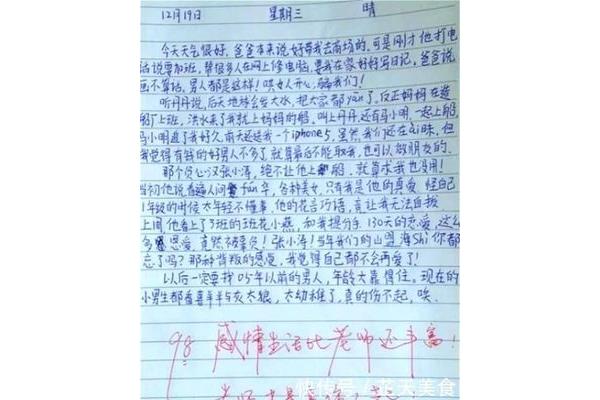 12月19日 星期三 晴
今天天气很好,爸爸本来说好带我去商场的,可是刚才他打电
话说要加班,帮很多人在网上修电脑,要我在家好好写日记,爸爸说
话不算话,男人都是这样!哄女人开心,骗我们!
听丹丹说,后天地球会发大水,把大家都yān了,反正妈妈在造
船厂上班,洪水来了我就上妈妈的船,叫上丹丹,还有马小明,一起上船,
马小明追了我好久,前天还送我一个iphone5,虽然我们还在ài昧,但
我觉得有钱的好男人不多了,就算最后不能取我,也可以做朋友的.
那个负心汉张小涛,绝不让他上船,就算求我也没用!
当初他说看遍人间fán华,各种美女,只有我是他的真爱,怪自己
1年级的时候太年轻不懂事,他的花言巧语,竟让我无法自拔
上周他看上了3班的班花小燕,和我提分手,130天的恋爱,这么
多恩爱,竟然不被重负!张小涛!当年我们的山盟海Shì你都
忘了吗?那种背叛的感觉,我觉得自己都不会再爱了!
以后一定要找05年以前的男人,年龄大靠得住。现在的
小男生都看喜羊羊与灰太狼,太幼稚了,真的伤不起,唉
98 感情生活比老师还丰富!
快传号/花天美食